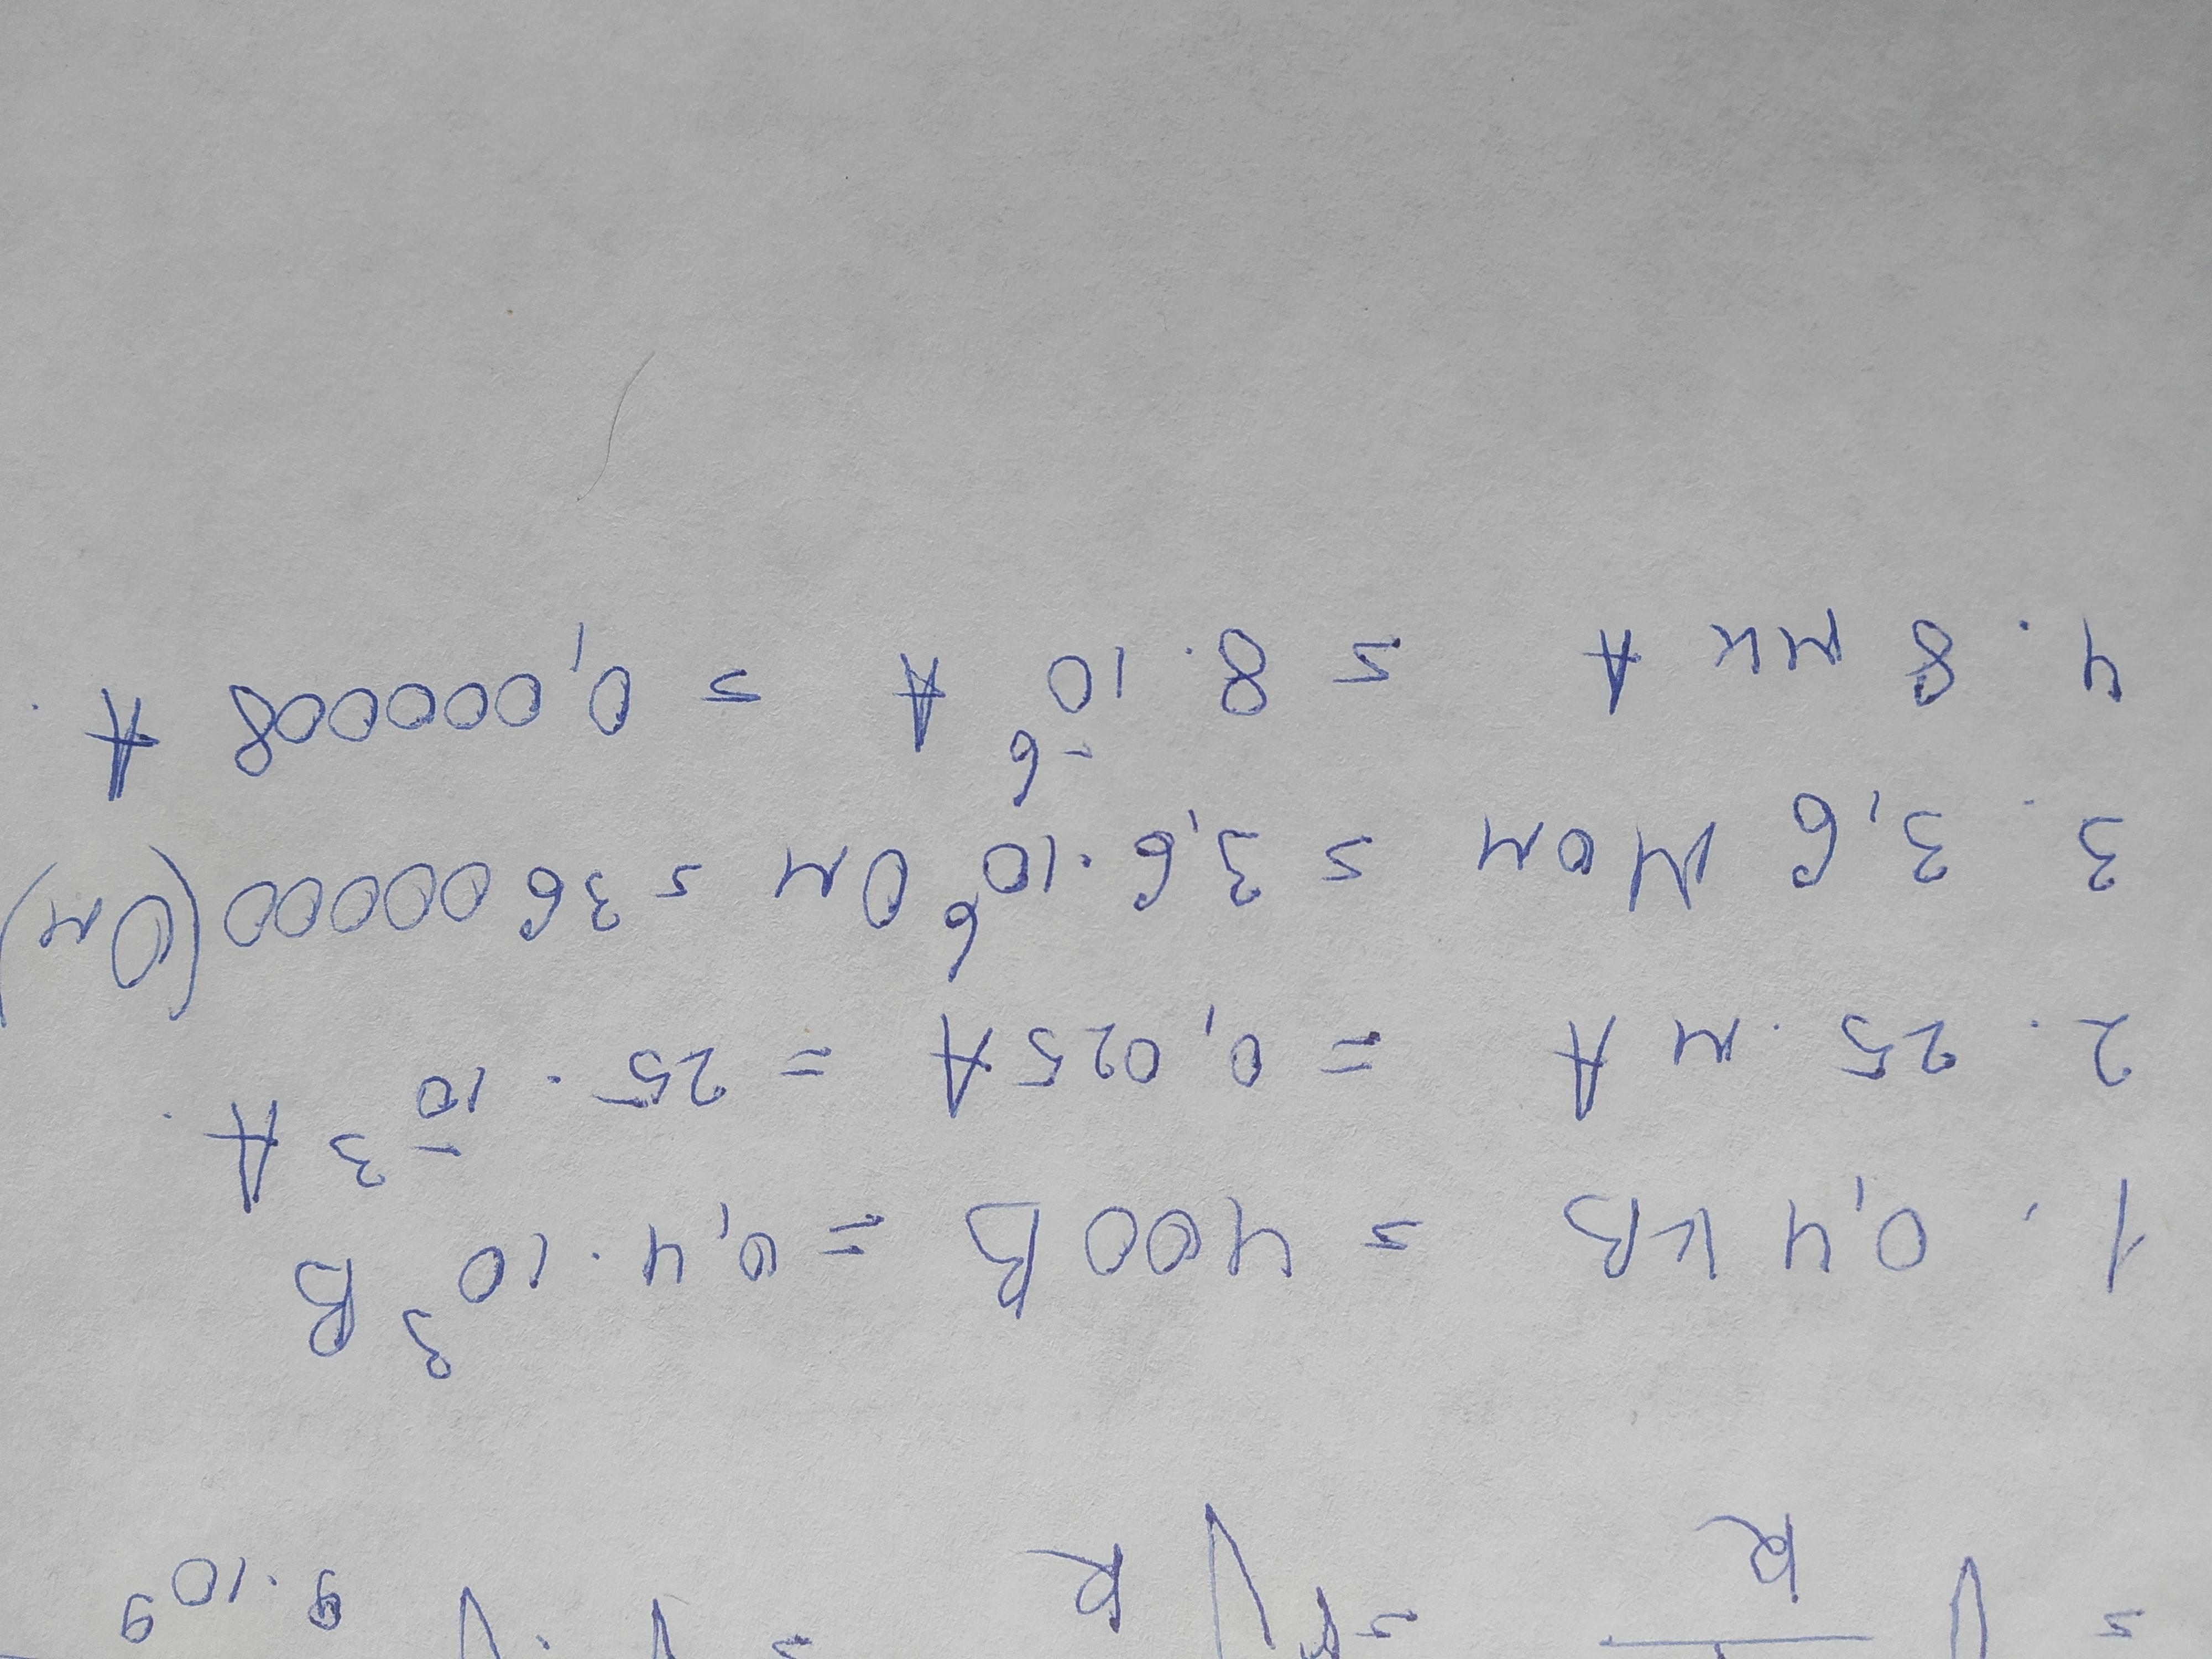 k k 9·10⁹
1. 0,4 кВ = 400 В = 0,4·10³ В
2. 25 мА = 0,025А = 25·10⁻³ А.
3. 3,6 МОм = 3,6·10⁶ Ом = 3600000 (Ом)
4. 8 мк А = 8·10⁻⁶ А = 0,000008 А.